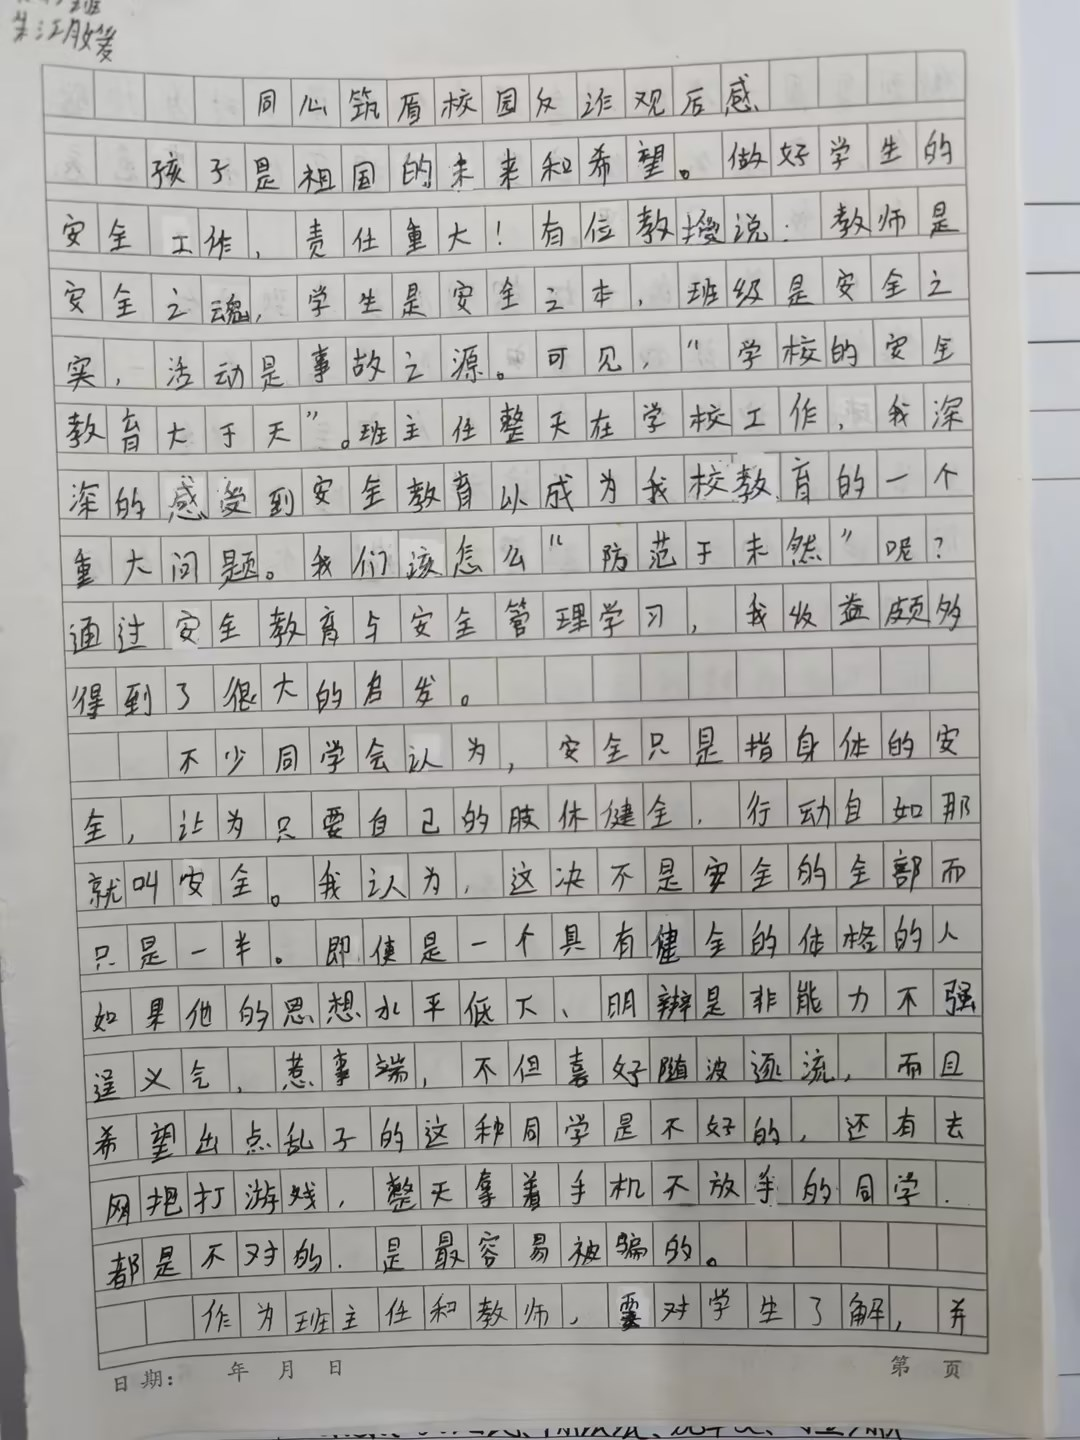 同心筑盾校园反诈观后感
孩子是祖国的未来和希望。做好学生的
安全工作，责任重大！有位教授说：教师是
安全之魂，学生是安全之本，班级是安全之
实，活动是事故之源。可见，“学校的安全
教育大于天”。班主任整天在学校工作，我深
深的感受到安全教育以成为我校教育的一个
重大问题。我们该怎么“防范于未然”呢？
通过安全教育与安全管理学习，我收益颇多
得到了很大的启发。
不少同学会认为，安全只是指身体的安
全，认为只要自己的肢体健全，行动自如那
就叫安全。我认为，这决不是安全的全部而
只是一半。即使是一个具有健全的体格的人
如果他的思想水平低下、明辨是非能力不强
逞义气，惹事端，不但喜好随波逐流，而且
希望出点乱子的这种同学是不好的，还有去
网把打游戏，整天拿着手机不放手的同学.
都是不对的.是最容易被骗的。
作为班主任和教师，要对学生了解，并
日期： 年 月 日
第 页